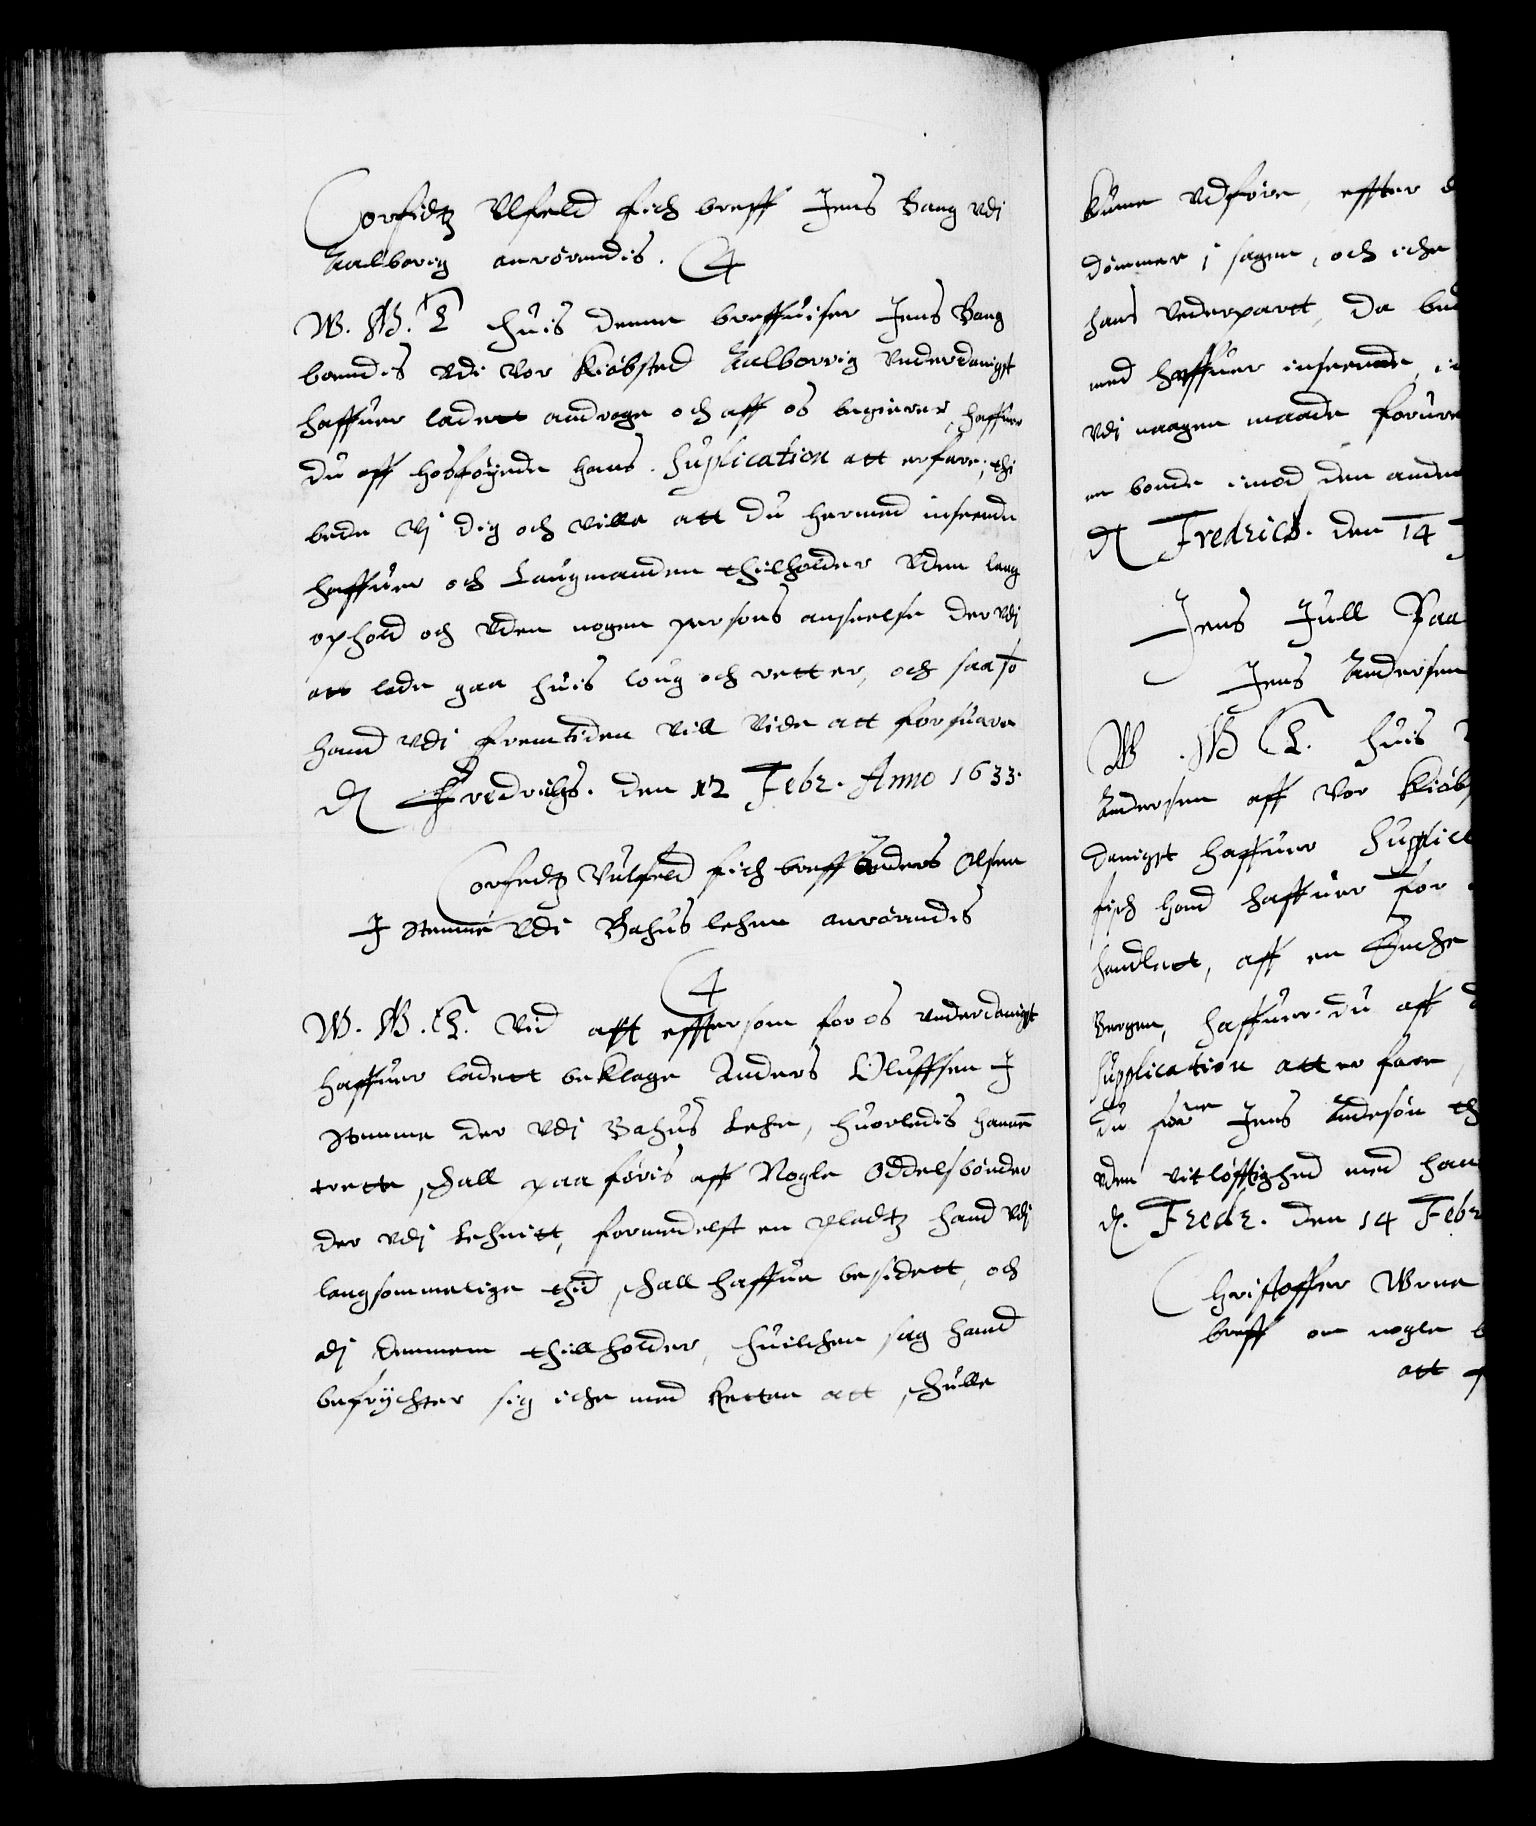 Corfidtz Ulfeld fich breff Jens Bang udj
Aalborig anrörendis.
W. G. T. huis denne breffuiser Jens Bang
boendis udi vor Kiöbsted Aalborrig underdanigst
haffuer ladett andrage och aff os begierer, haffuer
du aff hosföyede hans Suplication att erfare, thi
bede vj dig och ville att du hermed inseende
haffuer och Laugmanden thilholder uden lang
ophold och uden nogen persons anseelse der udj
att lade gaa huis loug och rett er, och saa
hand udj fremtiden vill vide att forsuare
D Fredrichs. den 12 Febr. Anno 1633.
Corfedtz Vulfeld fich breff Anders Olsen
J Stemme udi Bahus lehen anrörendis
W. G. T. Vid aft efftersom for os underdanigst
haffuer ladett beklage Anders Oluffsen J
Stemme der udj Bahus Lehn, huorledis hannem
trette, schall paa föris aff Nogle Oddelsbönder
der udj Lehnitt, formedelst en pladtz hand udj
langsommelige thid schall haffue besidett, och
dj dennem thillholder, huilchen sag hand
befrychter sig iche med Retten att schulle
kunne udföre, effter
dömmer i sagen, och iche
hans vederpartt, da
med haffuer inseende,
udj naagen maade
en bonde imod den anden
D Fredrich. den 14
Jens Jull Paa
Jens Andersen
W. G. T. huis
Andersen aff vor
danigst haffuer
sich hand haffuer for
handlett, aff en Enche
Bergen, haffuer du aff
Supplication att erfare,
du for.ne Jens Andesön
uden vitlöfftighed med
D. Fredr. den 14 Febr
Christoffer Urne
breff om nogle
att